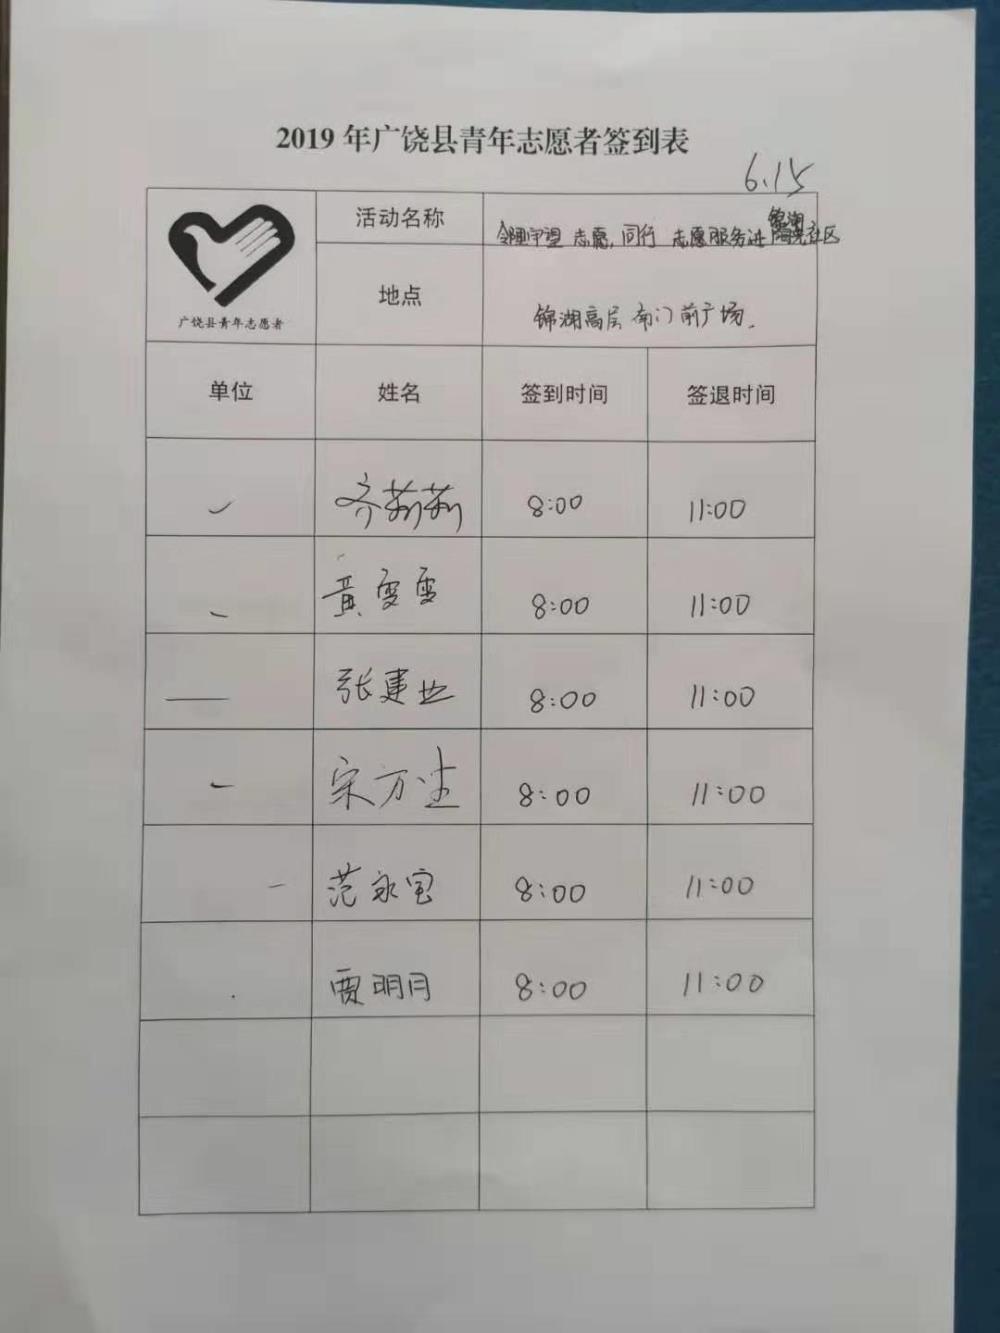 2019 年广饶县青年志愿者签到表
6.15
广饶县青年志愿者
活动名称
邻里守望 志愿同行 志愿服务进锦湖社区
地点
锦湖高层南门前广场.
单位 姓名 签到时间 签退时间
齐莉莉 8:00 11:00
黄雯雯 8:00 11:00
— 张建业 8:00 11:00
- 宋方 8:00 11:00
- 范永宝 8:00 11:00
贾明月 8:00 11:00